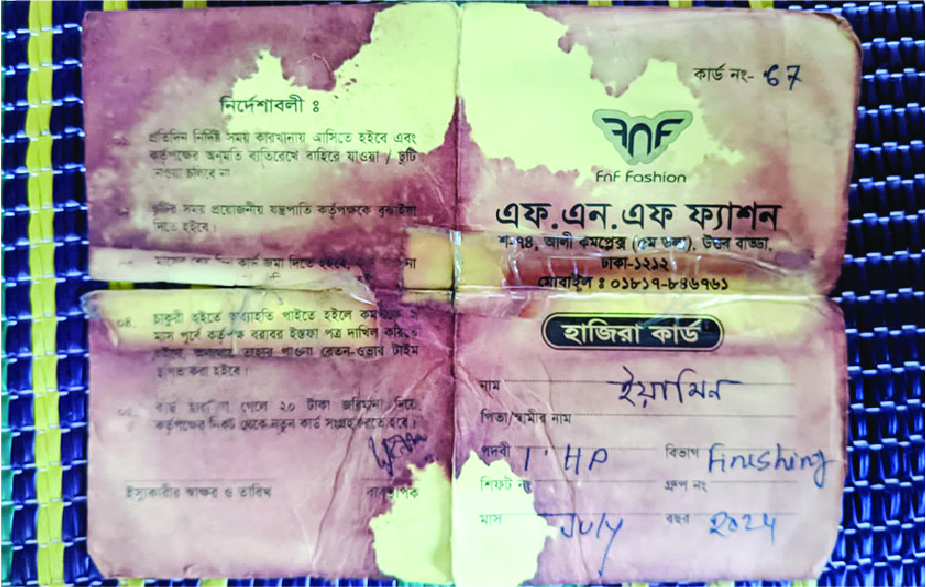 নির্দেশাবলী :
প্রতিদিন নির্দিষ্ট সময় কারখানায় আসিতে হইবে এবং
কর্তৃপক্ষের অনুমতি ব্যতিরেখে বাহিরে যাওয়া / ছুটি
নেওয়া চলিবে না
ছুটির সময় প্রয়োজনীয় যন্ত্রপাতি কর্তৃপক্ষকে বুঝাইয়া
দিতে হইবে।
কার্ড জমা দিতে হইবে,
০৪. চাকুরী হইতে অব্যাহতি পাইতে হইলে
মাস পূর্বে কর্তৃপক্ষ বরাবর ইস্তফা পত্র দাখিল
তাহার পাওনা বেতন-ওভার টাইম
স্থগিত করা হইবে।
কার্ড গেলে ২০ টাকা জরিমানা দিয়ে
কর্তৃপক্ষের নিকট থেকে নতুন কার্ড সংগ্রহ করতে হবে।
ইস্যুকারীর স্বাক্ষর ও তারিখ
ব্যবস্থাপক
কার্ড নং- 67
FNF
FnF Fashion
এফ.এন.এফ ফ্যাশন
শ-৭৪, আলী কমপ্লেক্স (৫ম তলা), উত্তর বাড্ডা,
ঢাকা-১২১২
মোবাইল : ০১৮১৭-৮৪৬৭৬১
হাজিরা কার্ড
নাম ইয়ামিন
পিতা/স্বামীর নাম
পদবী HP বিভাগ Finishing
শিফট নং গ্রুপ নং
মাস July বছর ২০২৪